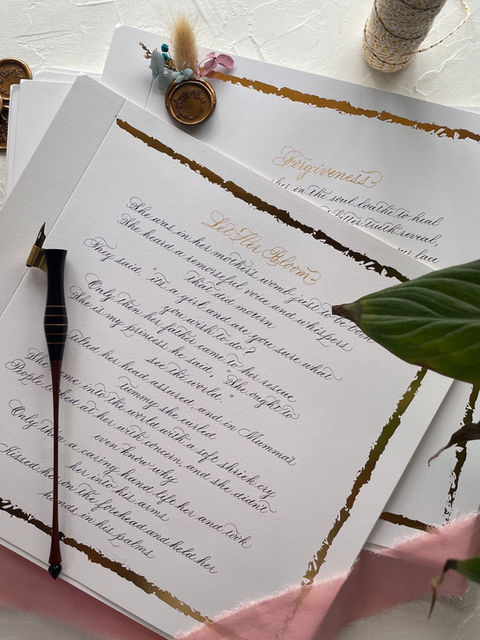 Forgiveness
her in the soul loathe to heal
bitter truth reveal,
Let Her Bloom
She was in her mother's womb, just to be born
She heard a remorseful voice and whispers
That did mourn
They said, "its a girl and are you sure what
you wish to do?
Only then her father came to her rescue
She is my princess he said, "She ought to
see the world."
She tilted her head assured, and in Mumma's
Tummy she curled
She came into the world with a soft shriek cry
People looked at her with concern, and she didn't
even know why
Only then a caring hand left her and took
her into his arms
Kissed her on the forehead and held her
hands in his palms